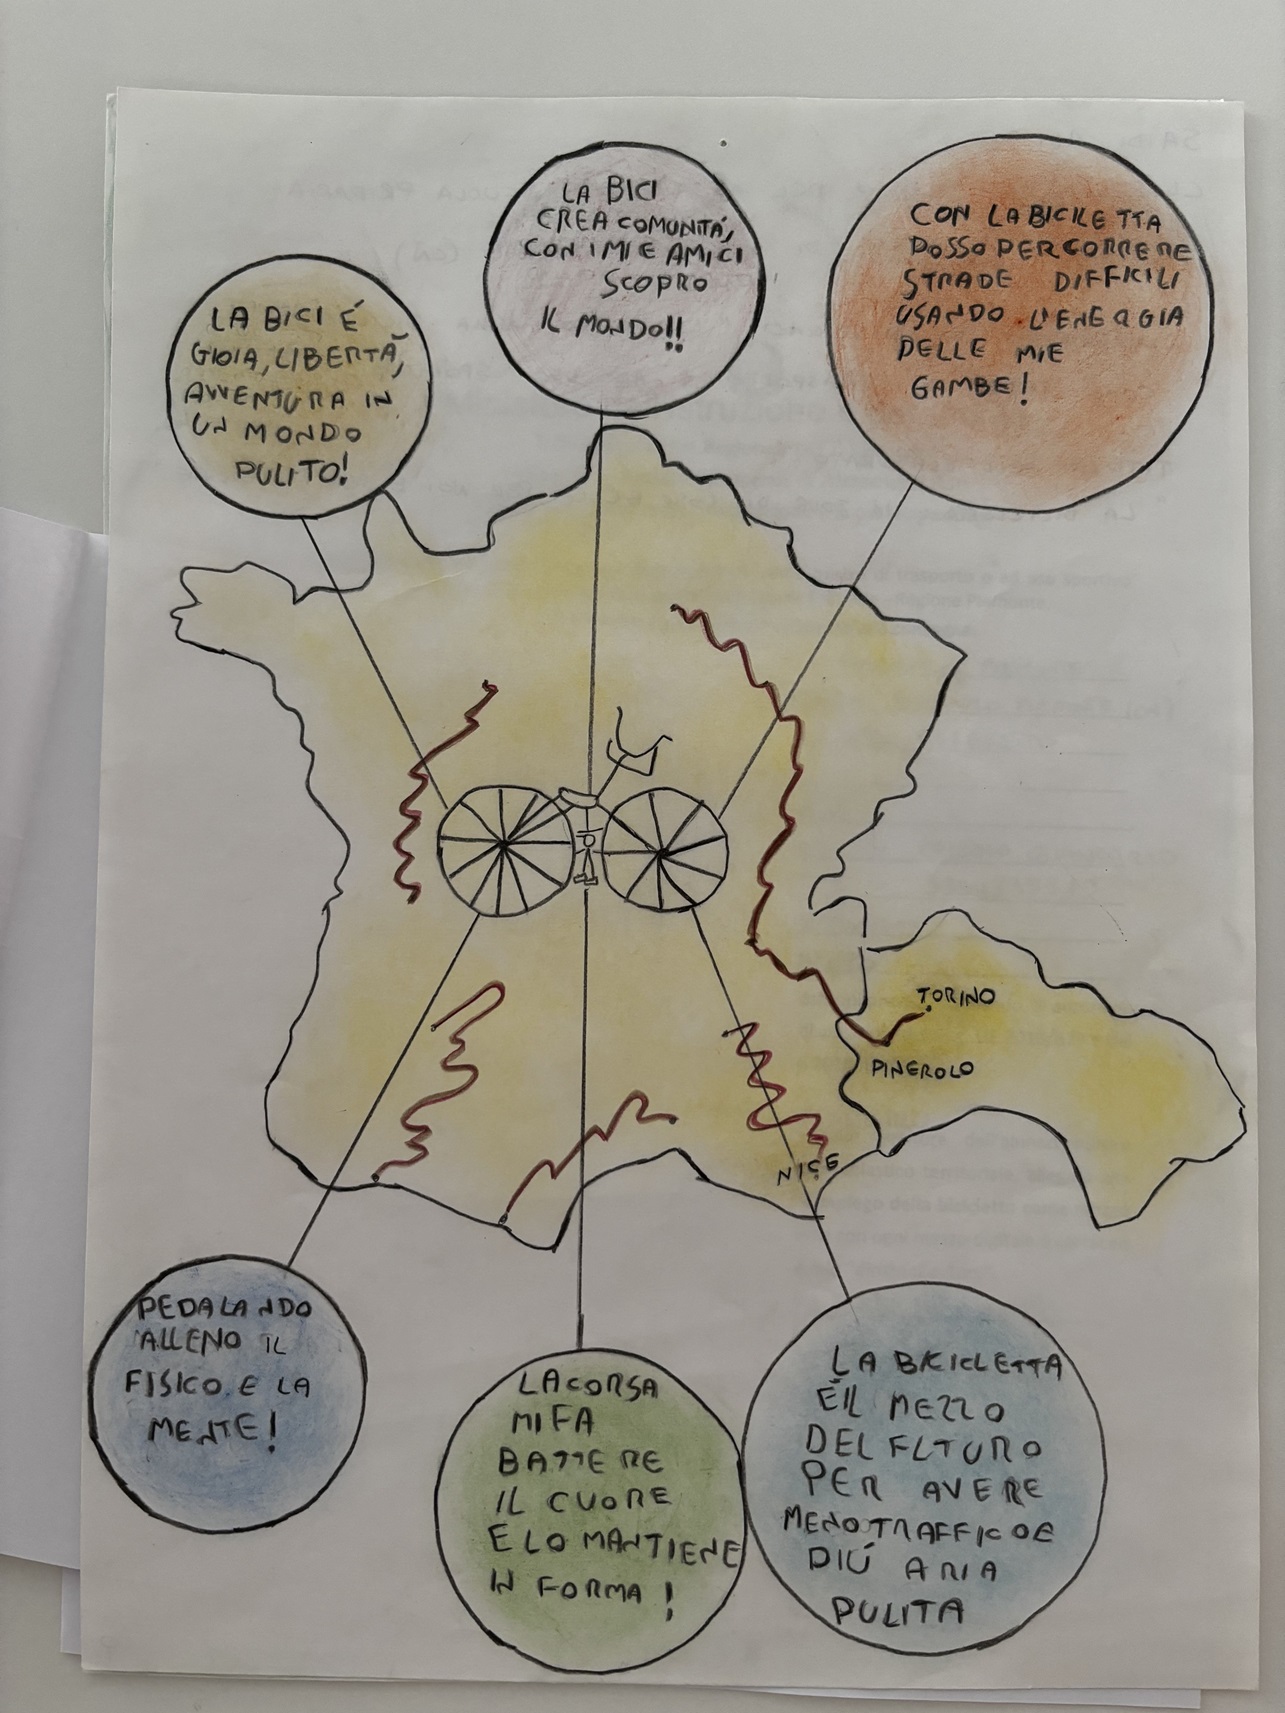 LA BICI É
GIOIA, LIBERTÀ,
AVVENTURA IN
UN MONDO
PULITO!
LA BICI
CREA COMUNITÁ,
CON I MIE AMICI
SCOPRO
IL MONDO!!
CON LA BICILETTA
POSSO PERCORRERE
STRADE DIFFICILI
USANDO L'ENERGIA
DELLE MIE
GAMBE!
TORINO
PINEROLO
NICE
PEDALANDO
ALLENO IL
FISICO E LA
MENTE!
LA CORSA
MI FA
BATTERE
IL CUORE
E LO MANTIENE
IN FORMA!
LA BICICLETTA
É IL MEZZO
DEL FUTURO
PER AVERE
MENO TRAFFICO E
PIÚ ARIA
PULITA